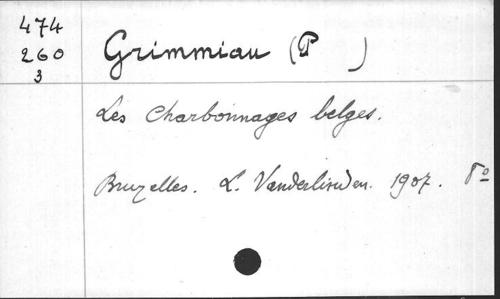 474
260
3
Grimmiau (P )
Les Charbonnages belges.
Bruxelles. L. Vanderlinden. 1907. 8o